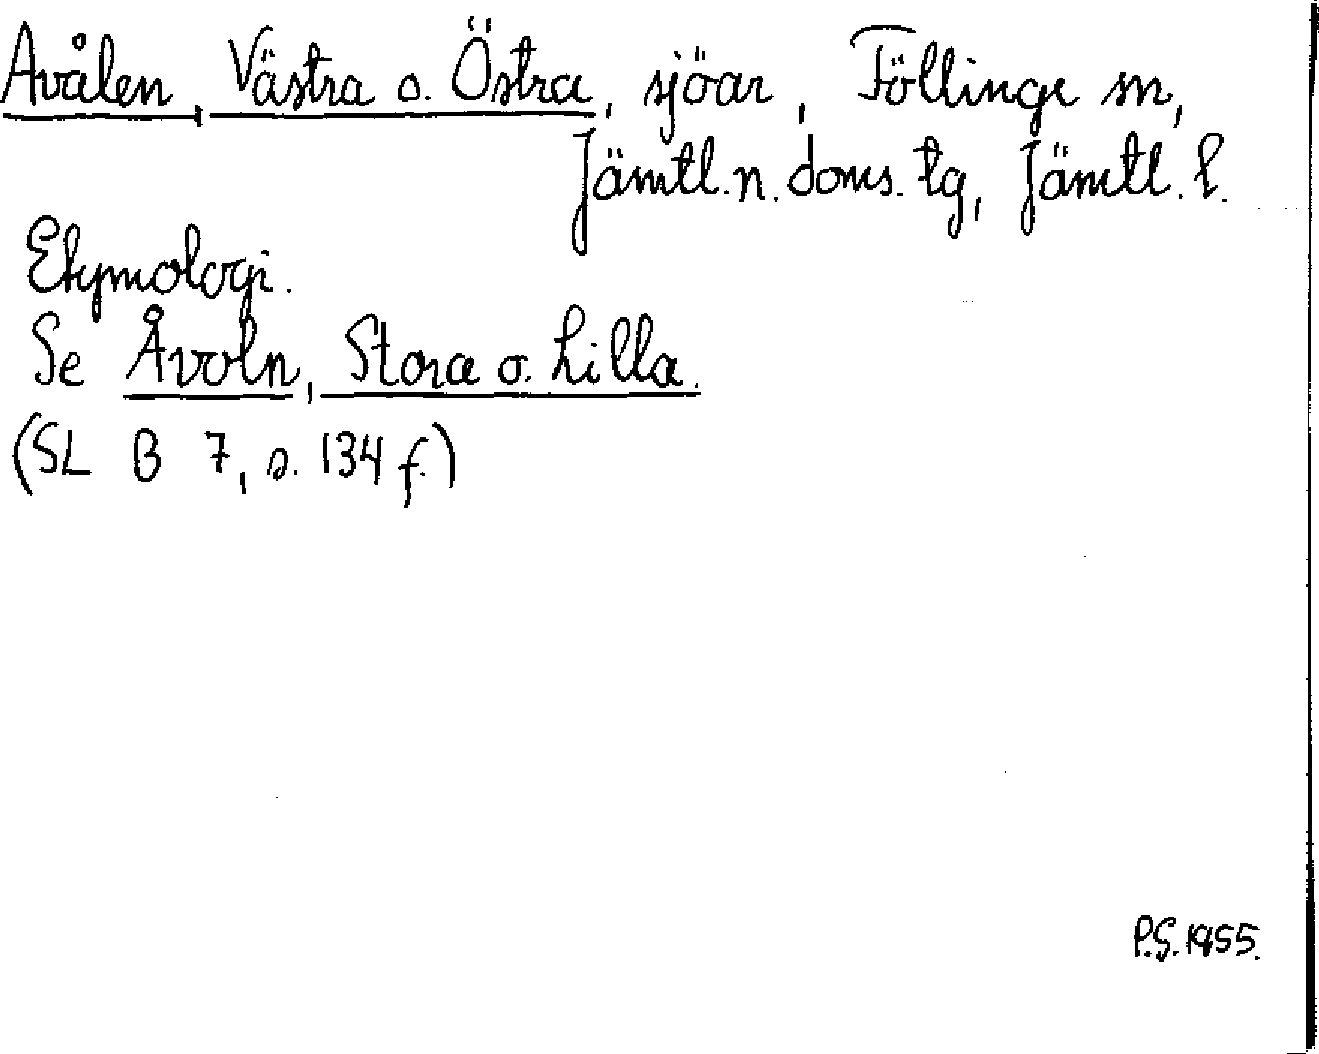 Avålen, Västra o. Östra, sjöar, Föllinge sn,
Jämtl. n. doms. tg, Jämtl. l.
Etymologi.
Se Åvoln, Stora o. Lilla.
(SL B 7, s. 134 f.)
P.S. 1955.